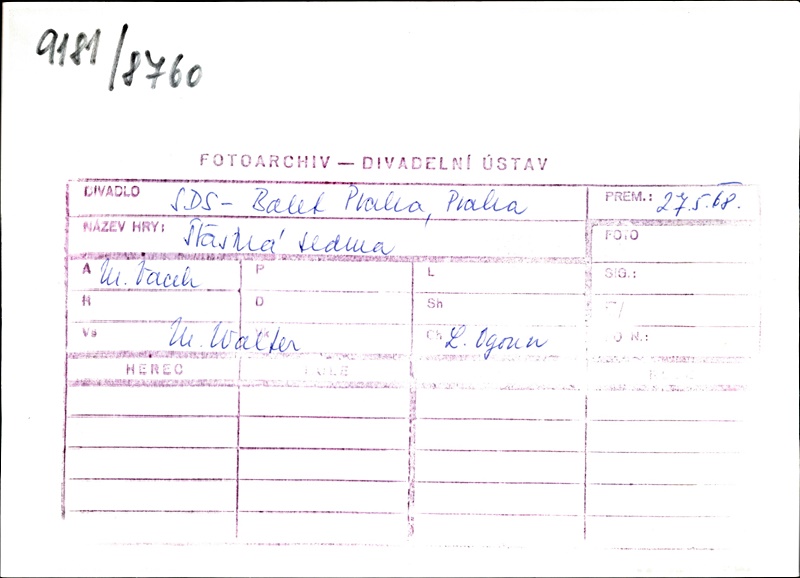 9181/8760
FOTOARCHIV — DIVADELNÍ ÚSTAV
DIVADLO SDS - Balet Praha, Praha PREM.: 27.5.68.
NÁZEV HRY: Šťastná sedma FOTO
A M. Vacek P L SIG.:
R D Sh
Vs M. Walter Ch L. Ogoun
HEREC